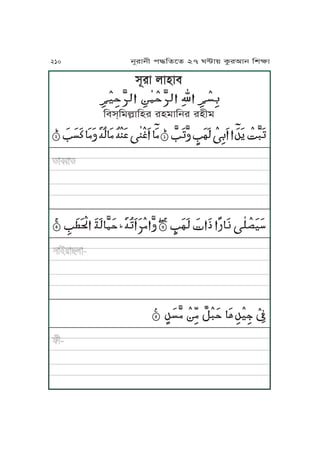 ২১০ নূরানী পদ্ধতিতে ২৭ ঘন্টায় কুরআন শিক্ষা
সূরা লাহাব
بِسْمِ اللهِ الرَّحْمٰنِ الرَّحِيْمِ
বিসমিল্লাহির রহমানির রহীম
تَبَّتْ يَدَآ اَبِىْ لَهَبٍ وَّتَبَّ ۞ مَآ اَغْنٰى عَنْهُ مَالُهٗ وَمَا كَسَبَ ۞
তাব্বাত
سَيَصْلٰى نَارًا ذَاتَ لَهَبٍ ۞ وَّامْرَاَتُهٗ ؕ حَمَّالَةَ الْحَطَبِ ۞
সাইয়াছলা-
فِىْ جِيْدِهَا حَبْلٌ مِّنْ مَّسَدٍ ۞
ফী-